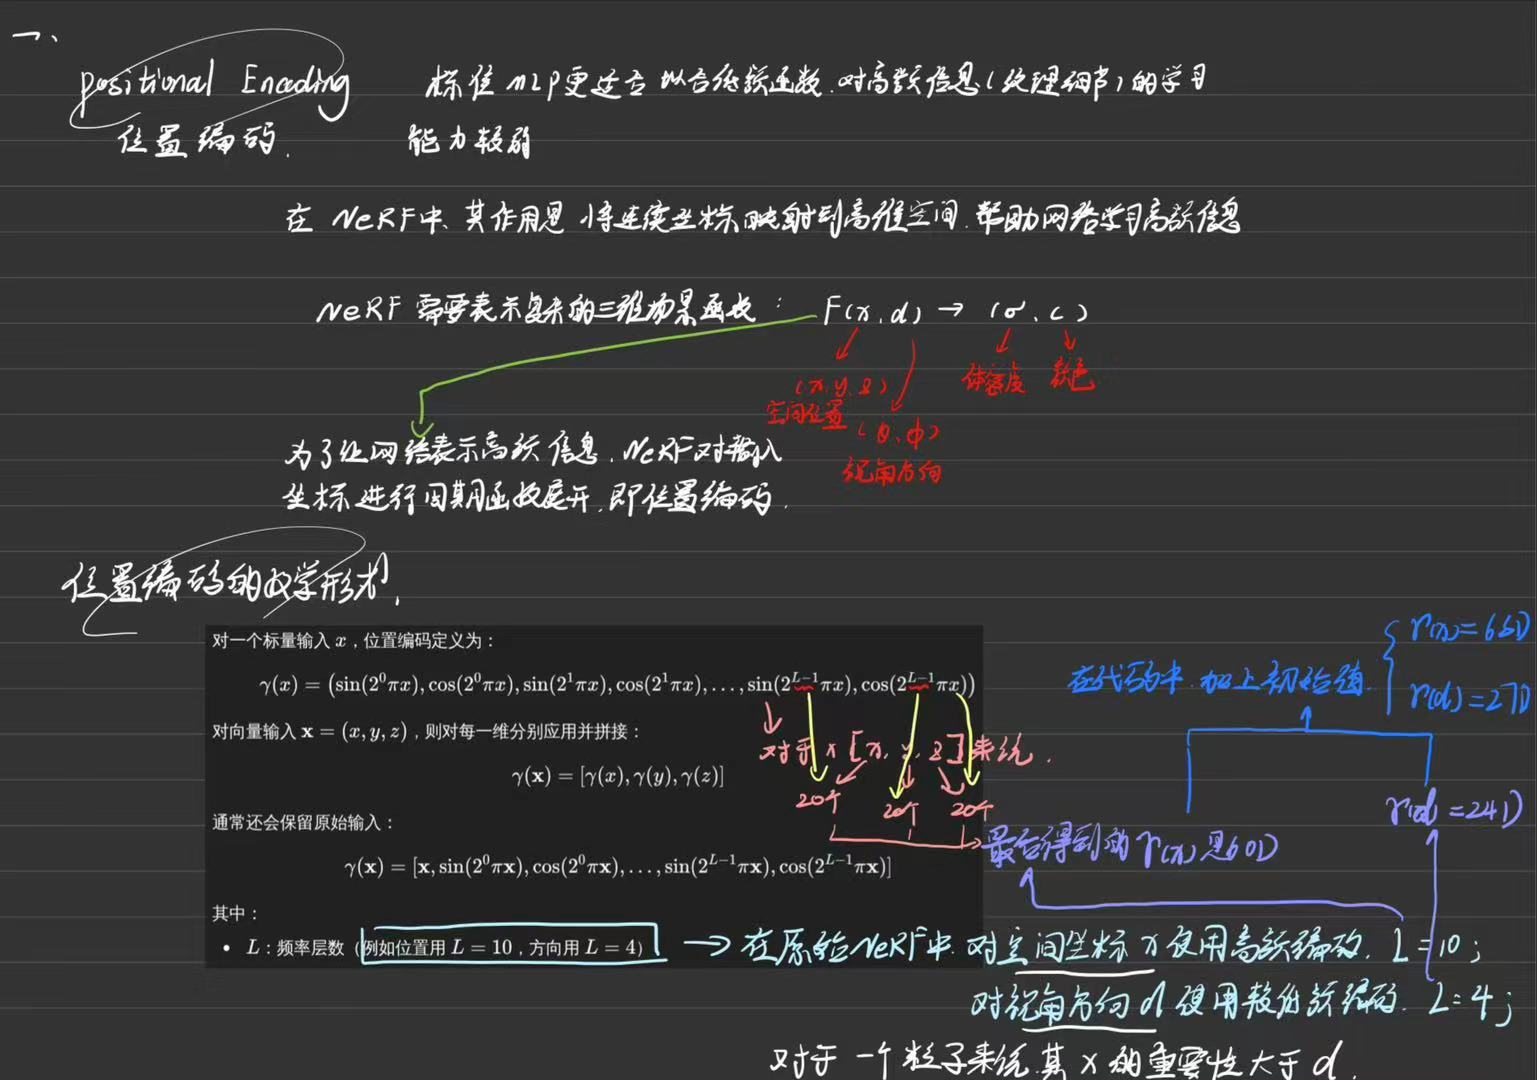 一、
positional Encoding 标准MLP更适合拟合低频函数,对高频信息(纹理细节)的学习
位置编码. 能力较弱
在NeRF中、其作用是将连续坐标映射到高维空间.帮助网络学习高频信息
NeRF需要表示复杂的三维场景函数: F(x,d)→(σ、c)
(x,y,z) 体密度 颜色
空间位置 (θ、φ)
视角方向
为了让网络表示高频信息、NeRF对输入
坐标进行周期函数展开,即位置编码.
位置编码的数学形式.
对一个标量输入 x,位置编码定义为:
γ(x) = (sin(2⁰πx), cos(2⁰πx), sin(2¹πx), cos(2¹πx), ..., sin(2^{L−1}πx), cos(2^{L−1}πx))
在代码中.加上初始值 { r(x)=63D
r(d)=27D
对向量输入 𝐱 = (x, y, z),则对每一维分别应用并拼接:
对于x[x,y,z]来说.
γ(𝐱) = [γ(x), γ(y), γ(z)]
20个 20个 20个
r(d)=24D
通常还会保留原始输入:
最后得到的r(x)是60D
γ(𝐱) = [𝐱, sin(2⁰π𝐱), cos(2⁰π𝐱), ..., sin(2^{L−1}π𝐱), cos(2^{L−1}π𝐱)]
其中:
• L:频率层数(例如位置用 L = 10,方向用 L = 4)
→在原始NeRF中.对空间坐标x使用高频编码. L=10;
对视角方向d使用较低频编码. L=4;
对于一个粒子来说.其x的重要性大于d.